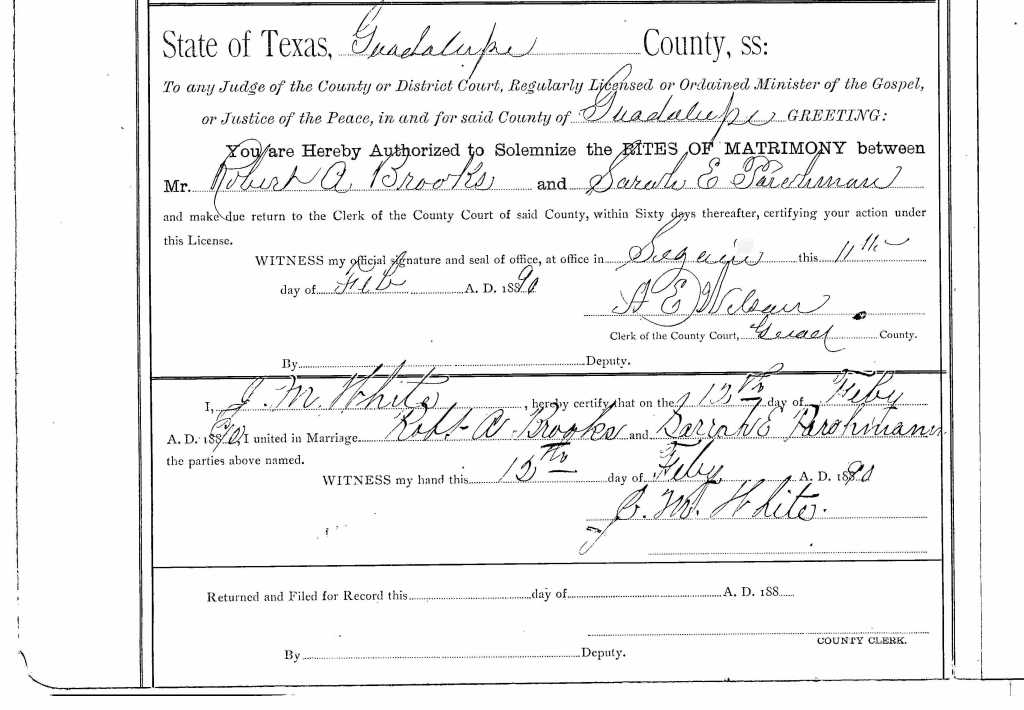 State of Texas, Guadalupe County, ss:
To any Judge of the County or District Court, Regularly Licensed or Ordained Minister of the Gospel,
or Justice of the Peace, in and for said County of Guadalupe GREETING:
You are Hereby Authorized to Solemnize the RITES OF MATRIMONY between
Mr. Robert A Brooks and Sarah E Parchman
and make due return to the Clerk of the County Court of said County, within Sixty days thereafter, certifying your action under
this License.
WITNESS my official signature and seal of office, at office in Seguin this 11th
day of Feb A. D. 1890
A E Wilson
Clerk of the County Court, Guad County.
By Deputy.
I, J. M. White, hereby certify that on the 12th day of Feby
A. D. 1890, I united in Marriage Robt A. Brooks and Sarah E Parchman
the parties above named.
WITNESS my hand this 12th day of Feby A. D. 1890
J. M. White.
Returned and Filed for Record this day of A. D. 188
COUNTY CLERK.
By Deputy.